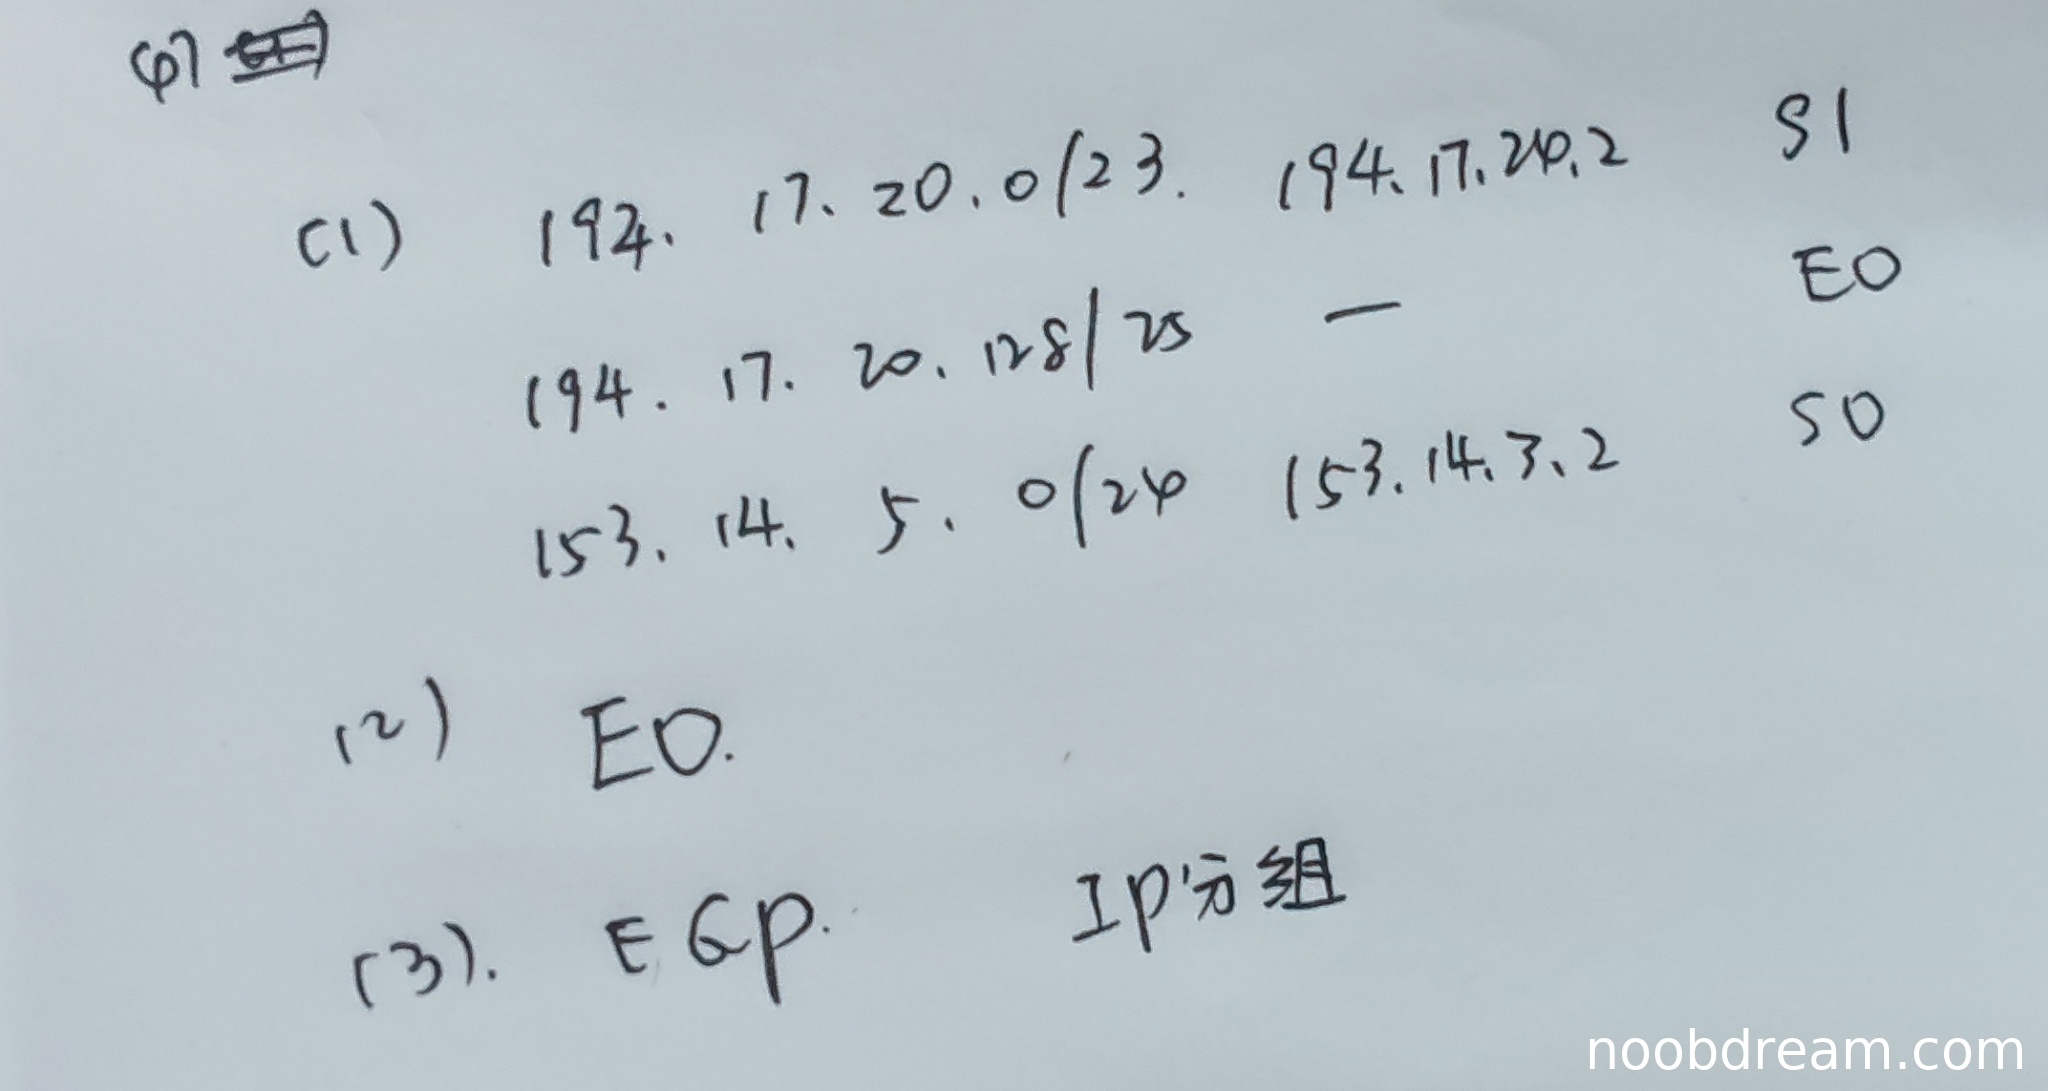 47
(1) 194. 17. 20. 0/23. 194.17.24.2 S1
194. 17. 20. 128/25 — E0
153. 14. 5. 0/24 153.14.3.2 S0
(2) E0.
(3). EGP. IP分组
noobdream.com